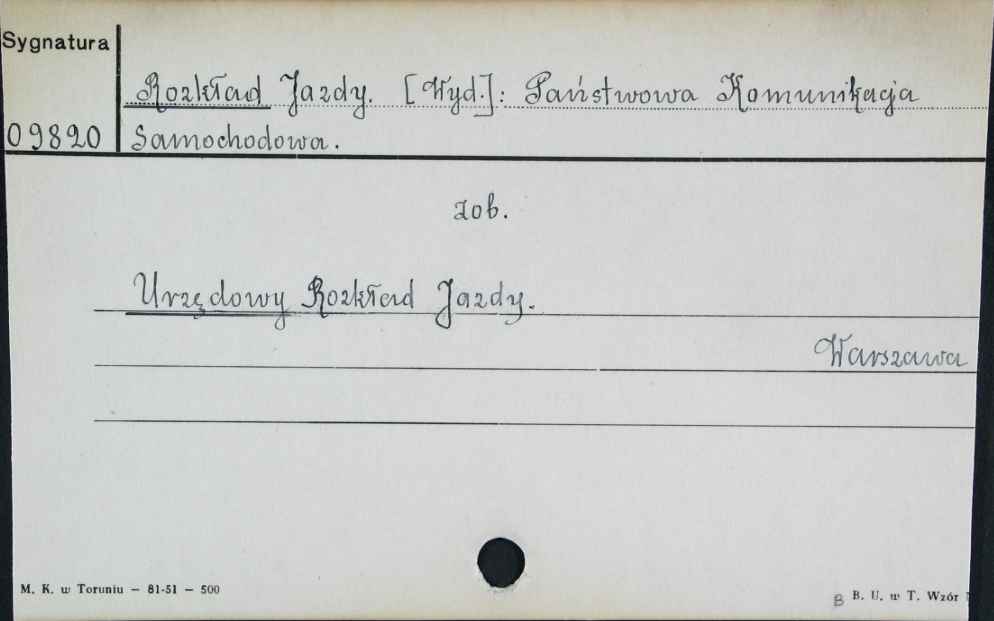 Sygnatura
Rozkład Jazdy. [Wyd.]: Państwowa Komunikacja
09820 Samochodowa.
zob.
Urzędowy Rozkład Jazdy.
Warszawa
M. K. w Toruniu — 81-51 — 500
B B. U. w T. Wzór